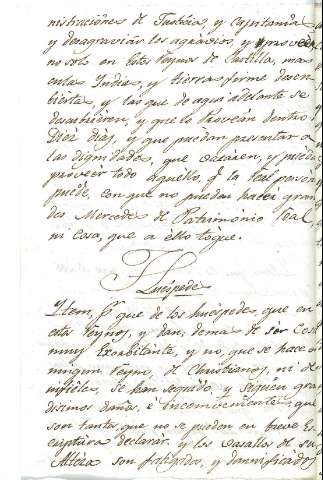 nistraciones de Justicia, y Capitania
y desagraviàr los agràvios, y provèer
no solo en estos reynos de Castilla, mas
en las Indias, y tierra firme descu
bierta, y las que de aqui adelante se
descubrieren, y que lo provèan dentro
Diez dias, y que puedan presentar a
las dignidades, que vacaren, y pueda
proveèr todo aquello, q̃ la real persona
puede, con que no puedan hacèr gran
des Mercedes de Patrimònio real,
ni cosa, que a ello toque.
Huèspede
Item, p.r que de los huèspedes, que en
estos reynos, se dan, demas de ser cosa
muy Exorbitànte, y no, que se hace en
ningun reyno, de Christianos, ni de
infieles, se han seguido, y siguen gran
disimos daños, è incombenientes que
son tantos, que no se pueden en breve Es
criptura declarar y los Vasallos de su
Altèza son fatigados, y damnificados